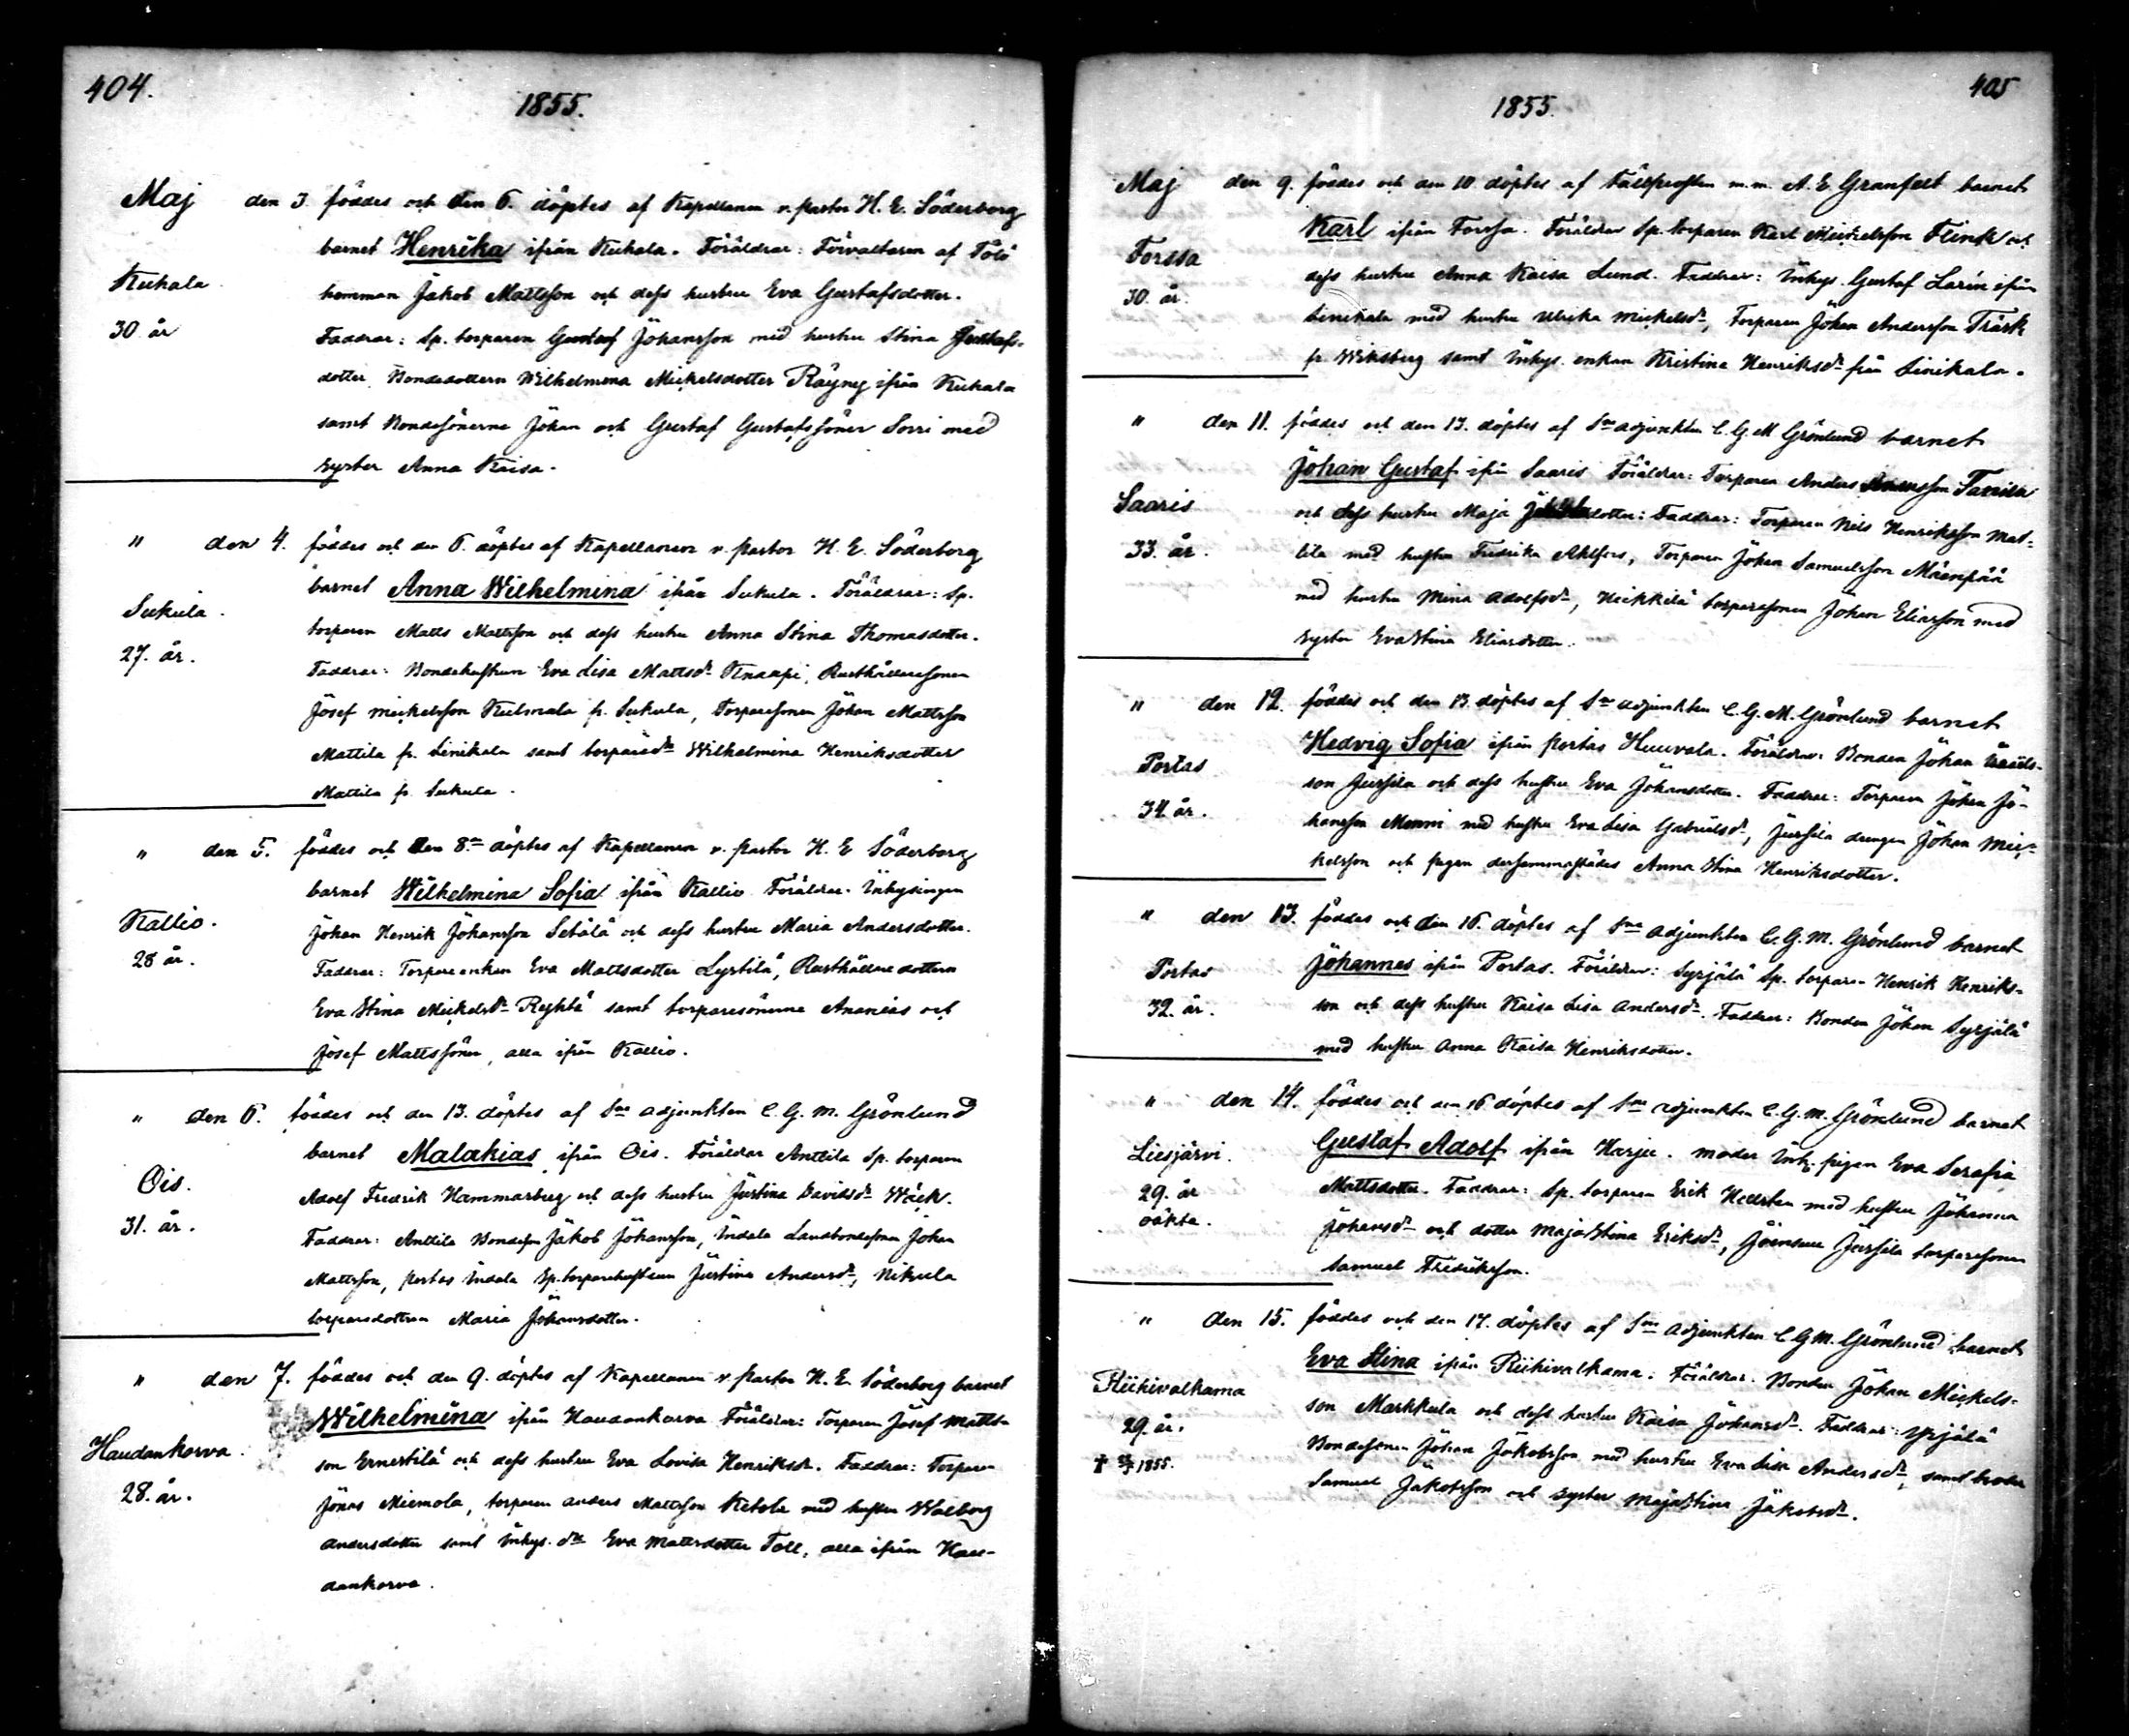 404.
1855.
Maj den 3. föddes och den 6. döptes af Kapellanen v. pastor H. E. Söderborg
barnet Henrika ifrån Kuhala. Föräldrar: Förvaltaren af Tölö
Kuhala
hemman Jakob Mattsson och dess hustru Eva Gustafsdotter.
30 år
Faddrar: Sp. torparen Gustaf Johansson med hustru Stina Gustafs-
dotter, Bondedottern Wilhelmina Mickelsdotter ifrån Kuhala
samt Bondesönerne Johan och Gustaf Gustafssöner Sorri med
syster Anna Kaisa.
" den 4. föddes och den 6. döptes af Kapellanen v. pastor H. E. Söderborg
barnet Anna Wilhelmina ifrån Sukula. Föräldrar: Sp.
Sukula.
torparen Matts Mattsson och dess hustru Anna Stina Thomasdotter.
27. år.
Faddrar: Bondehustrun Eva Lisa Mattsdr Knaapi, Rusthållaresonen
Josef Mickelsson Kulmala fr. Sukula, Torparesonen Johan Mattsson
Mattila fr. Linikala samt torparedr Wilhelmina Henriksdotter
Mattila fr. Sukula.
" den 5. föddes och den 8.de döptes af Kapellanen v. pastor H. E. Söderborg
barnet Wilhelmina Sofia ifrån Kallio Föräldrar. Inhysingen
Kallio.
Johan Henrik Johansson Setälä och dess hustru Maria Andersdotter.
28 år.
Faddrar: Torpareenkan Eva Mattsdotter Lystilä, Rusthållaredottern
Eva Stina Mickelsdr Reyhtä samt torparesönerne Ananias och
Josef Mattssöner, alla ifrån Kallio.
" den 6. föddes och den 13. döptes af Sne adjunkten C. G. M. Grönlund
barnet Malakias ifrån Ois. Föräldrar Anttila Sp. torparen
Ois.
Adolf Fredrik Hammarberg och dess hustru Justina Davidsdr Wäck.
31. år.
Faddrar: Anttila Bondeson Jakob Johansson, Indala Landbondesonen Johan
Mattsson, Portas Indala Sp. torparehustrun Justina Andersdr, Nikula
torparedottren Maria Johansdotter.
" den 7. föddes och den 9. döptes af Kapellanen v. pastor H. E. Söderborg barnet
Wilhelmina ifrån Haudankorva Föräldrar: Torparen Josef Matts-
Haudankorva.
son Ernestilä och dess hustru Eva Lovisa Henriksdr. Faddrar: Torparen
28. år.
Jonas Miemola, torparen Anders Mattsson Ketola med hustru Walborg
Andersdotter samt Inhys. dr Eva Mattsdotter Toll, alla ifrån Hau-
dankorva.
405
1855.
Maj den 9. föddes och den 10 döptes af Fältprosten m.m. A. E. Granfelt barnet
Karl ifrån Forssa. Föräldrar Sp. torparen Karl Mickelsson Flink och
Forssa
dess hustru Anna Kaisa Lund. Faddrar: Inhys. Gustaf Larin ifrån
30. år.
Linikala med hustru Ulrika Mickelsdr, Torparen Johan Andersson Träsk
fr. Wiksberg samt Inhys. enkan Kristina Henriksdr från Linikala.
" den 11. föddes och den 13. döptes af Sne adjunkten C. G. M Grönlund barnet
Johan Gustaf ifrån Saaris Föräldrar: Torparen Anders Tanila
Saaris
och dess hustru Maja dotter: Faddrar: Torparen Nils Henriksson Mat-
33. år.
tila med hustru Fredrika Ahlfors, Torparen Johan Samuelsson Mäenpää
med hustru Mina Adolfsdr, Heikkilä torparesonen Johan Eliasson med
syster Eva Stina Eliasdotter.
" den 12. föddes och den 13. döptes af Sne adjunkten C. G. M. Grönlund barnet
Hedvig Sofia ifrån Portas Huuvala. Föräldrar: Bonden Johan
Portas
son Jussila och dess hustru Eva Johansdotter. Faddrar: Torparen Johan Jo-
34 år.
hansson Monni med hustru Eva Lisa Gabrielsdr, Jussila drengen Johan Mic-
kelsson och pigan dersammastädes Anna Stina Henriksdotter.
" den 13. föddes och den 16. döptes af Sne adjunkten C. G. M. Grönlund barnet
Johannes ifrån Portas. Föräldrar: Syrjälä Sp. torparen Henrik Henriks-
Portas
son och dess hustru Kaisa Lisa Andersdr. Faddrar: Bonden Johan Syrjälä
32. år.
med hustru Anna Kaisa Henriksdotter.
" den 14. föddes och den 16 döptes af Sne adjunkten C. G. M. Grönlund barnet
Gustaf Adolf ifrån Harju. moder Inh. pigan Eva Serafia
Liesjärvi.
Mattsdotter. Faddrar: Sp. torparen Erik Hellsten med hustru Johanna
29. år
oäkta.
Johansdr och dotter Maja Stina Eriksdr, Joensuu Jussila torparesonen
Samuel Fredriksson.
" den 15. föddes och den 17. döptes af Sne adjunkten C G M. Grönlund barnet
Eva Stina ifrån Riihivalkama: Föräldrar. Bonden Johan Mickels-
Riihivalkama
son Markkula och dess hustru Kaisa Johansdr. Faddrar: Yrjälä
29. år.
Bondesonen Johan Jakobsson med hustru Eva Lisa Andersdr, samt broder
† 1855.
Samuel Jakobsson och syster Maja Stina Jakobsdr.